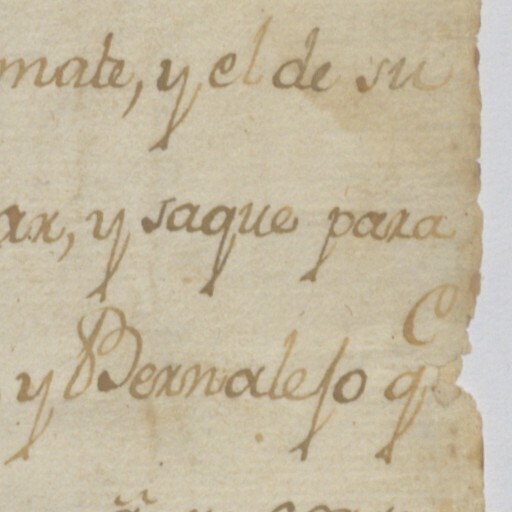 mate, y el de su
ax, y saque para
y Bernalejo q